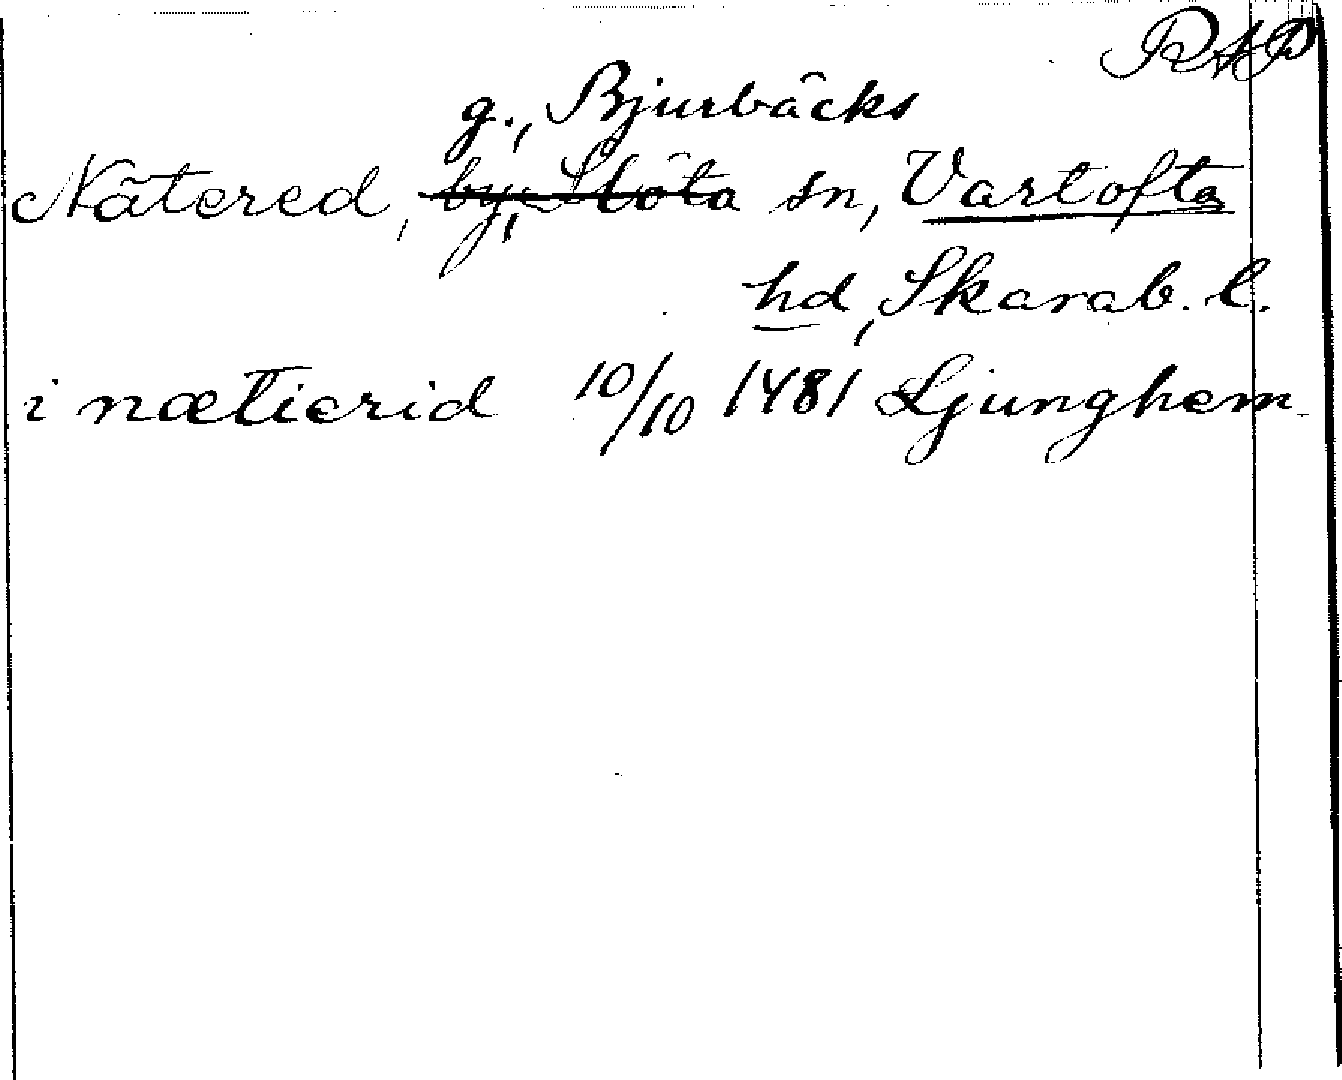 RAP
g., Bjurbäcks
Nätered, by, Slöta sn, Vartofta
hd, Skarab. l.
i nætierid 10/10 1481 Ljunghem